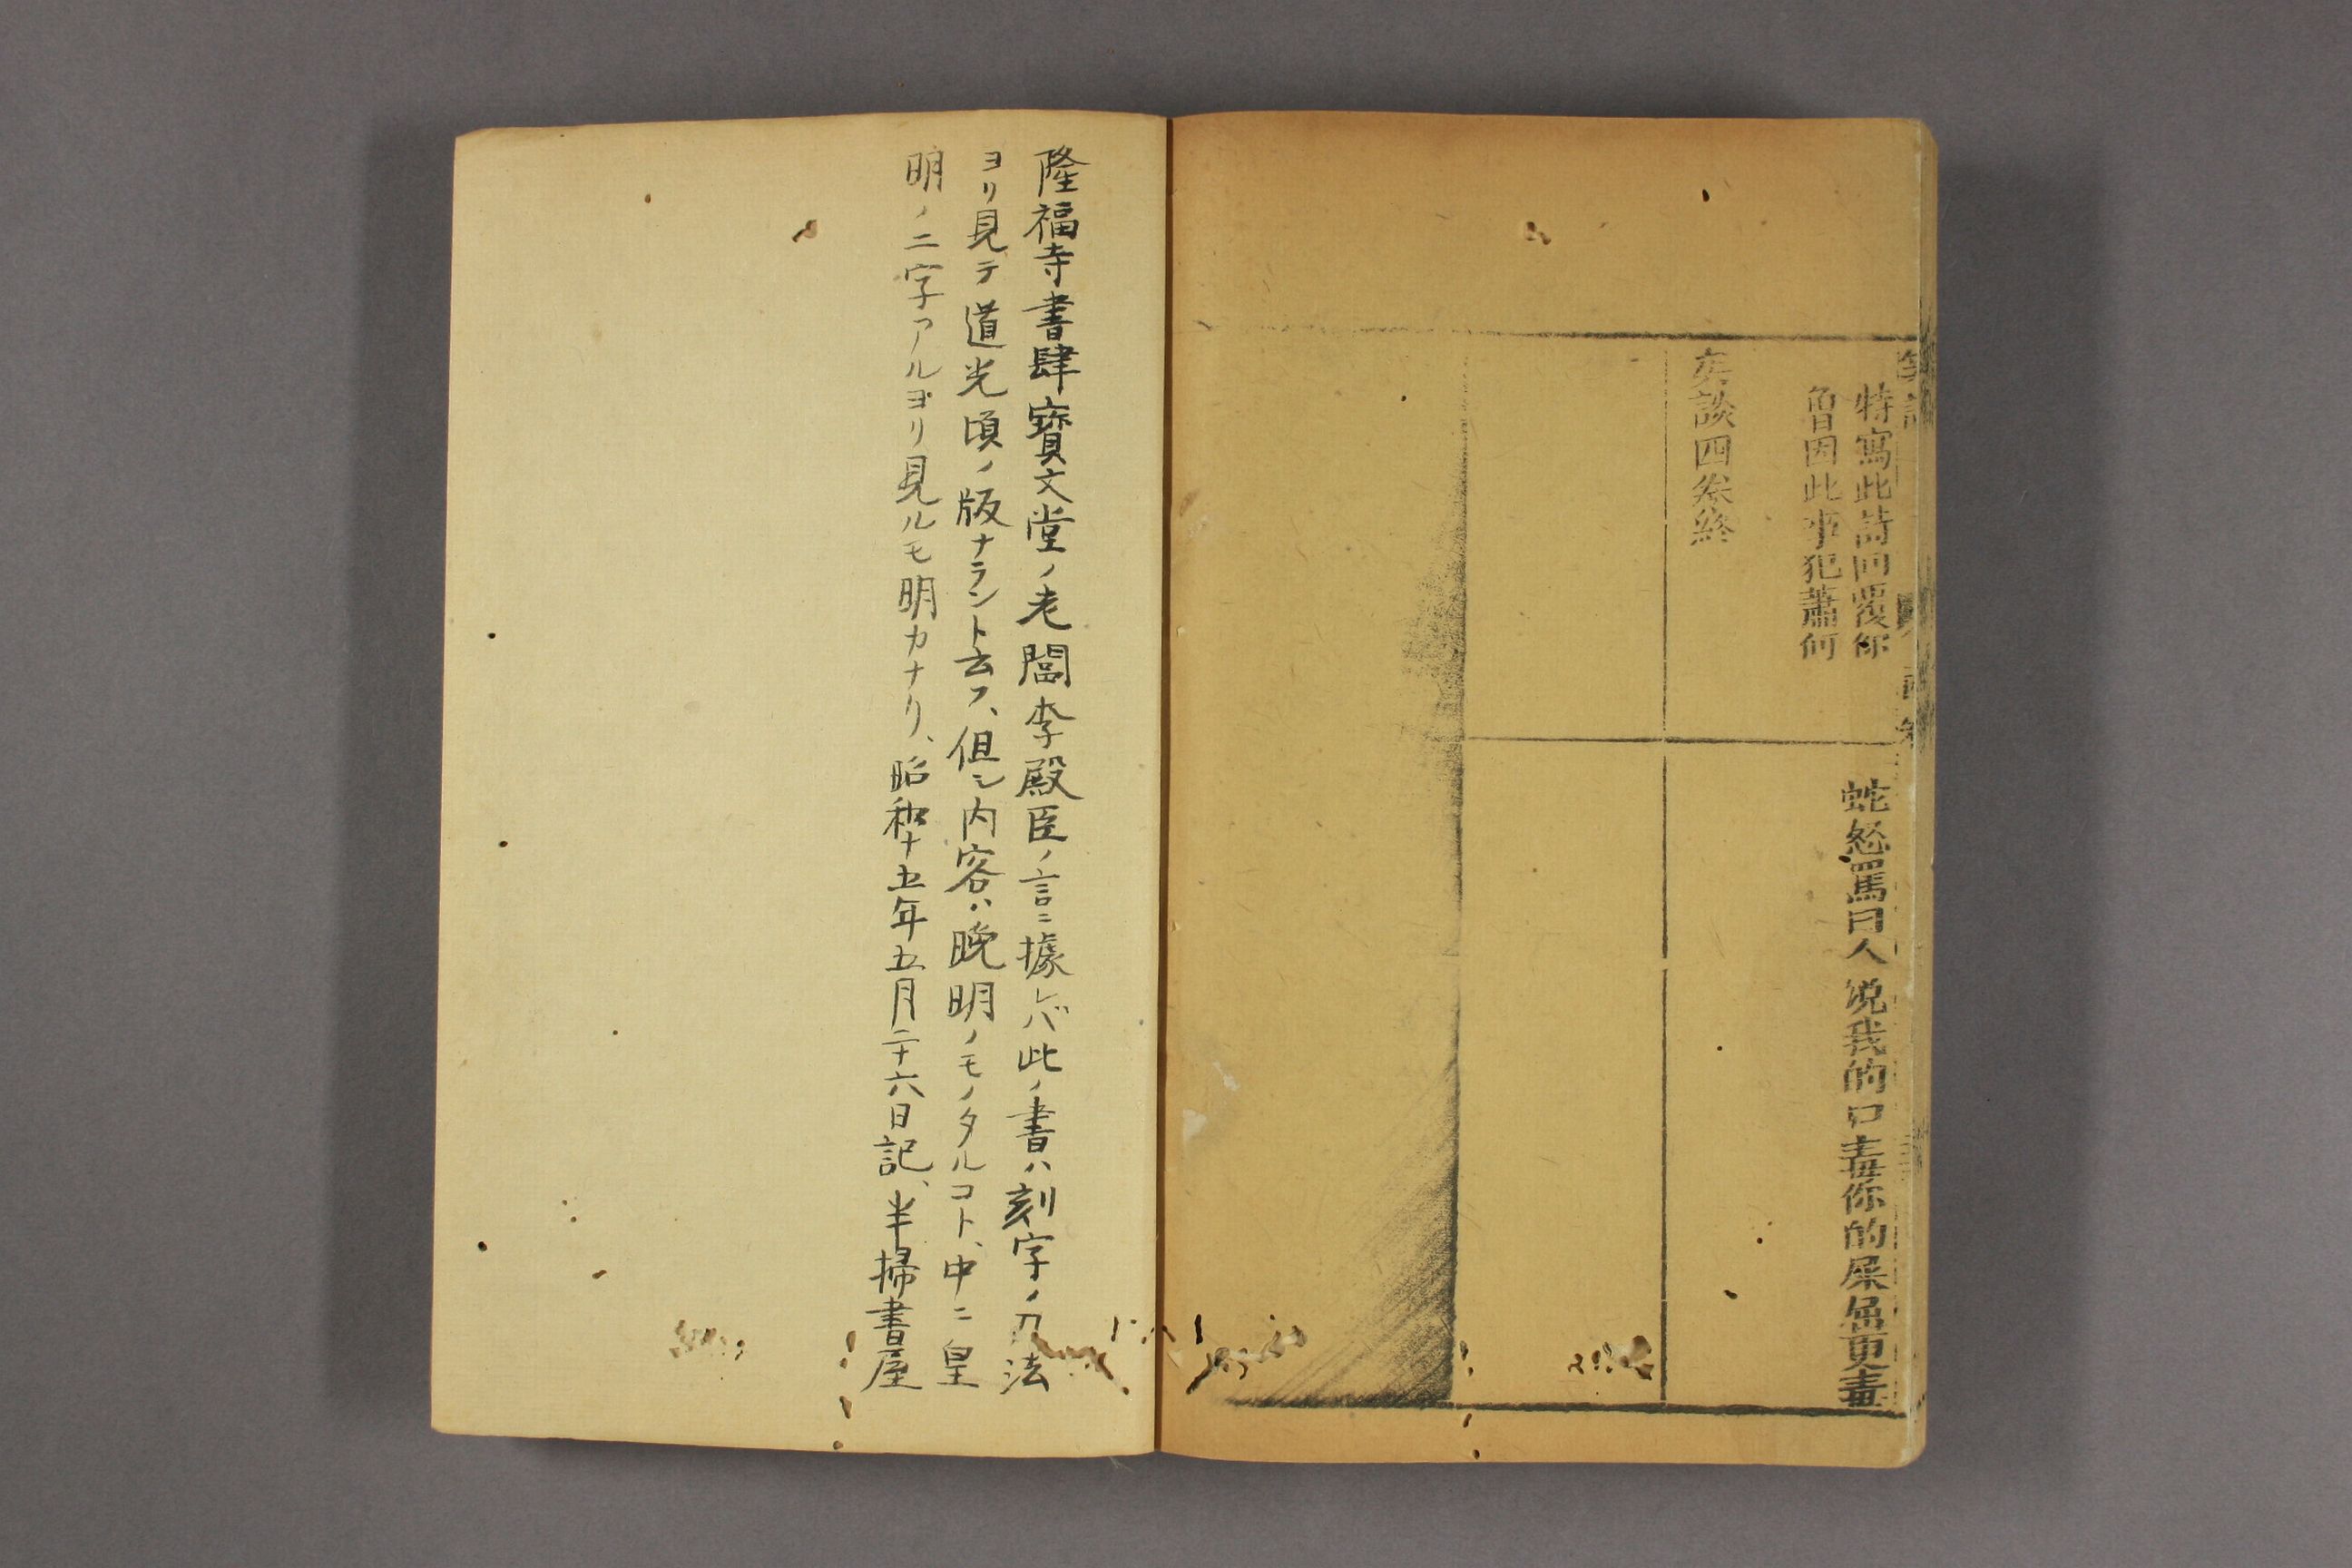 特寫此詩回覆你
曾因此事犯蕭何
笑談四卷終
蛇怒罵曰人說我的口毒你的屎屈更毒
隆福寺書肆寶文堂ノ老闆李殿臣ノ言ニ據レバ此ノ書ハ刻字ノ刀法
ヨリ見テ道光頃ノ版ナラント云フ、但シ内容ハ晩明ノモノタルコト、中ニ皇
明ノ二字アルヨリ見ルモ明カナリ、昭和十五年五月二十六日記、半掃書屋